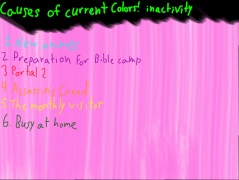 Causes of current Colors! inactivity
1 New
2 Preparation for Bible camp
3 Portal 2
4 Assassins Creed
5 The monthly visitor
6. Busy at home